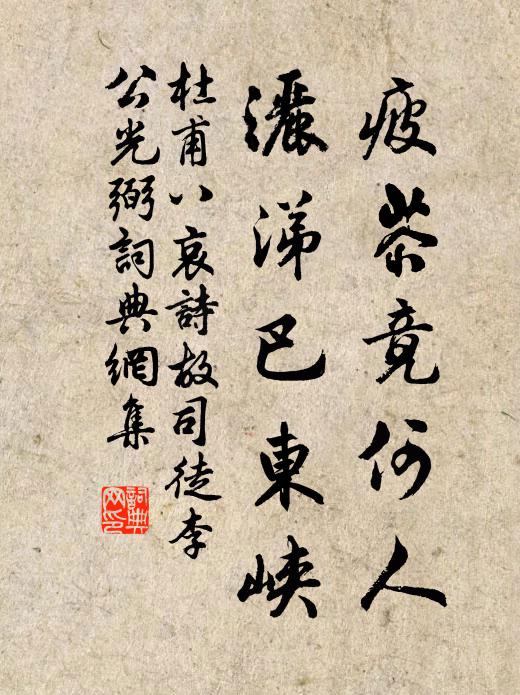 疲苶竟何人
灑涕巴東峽
杜甫八哀詩故司徒李
公光弼詞典網集
詞典網印